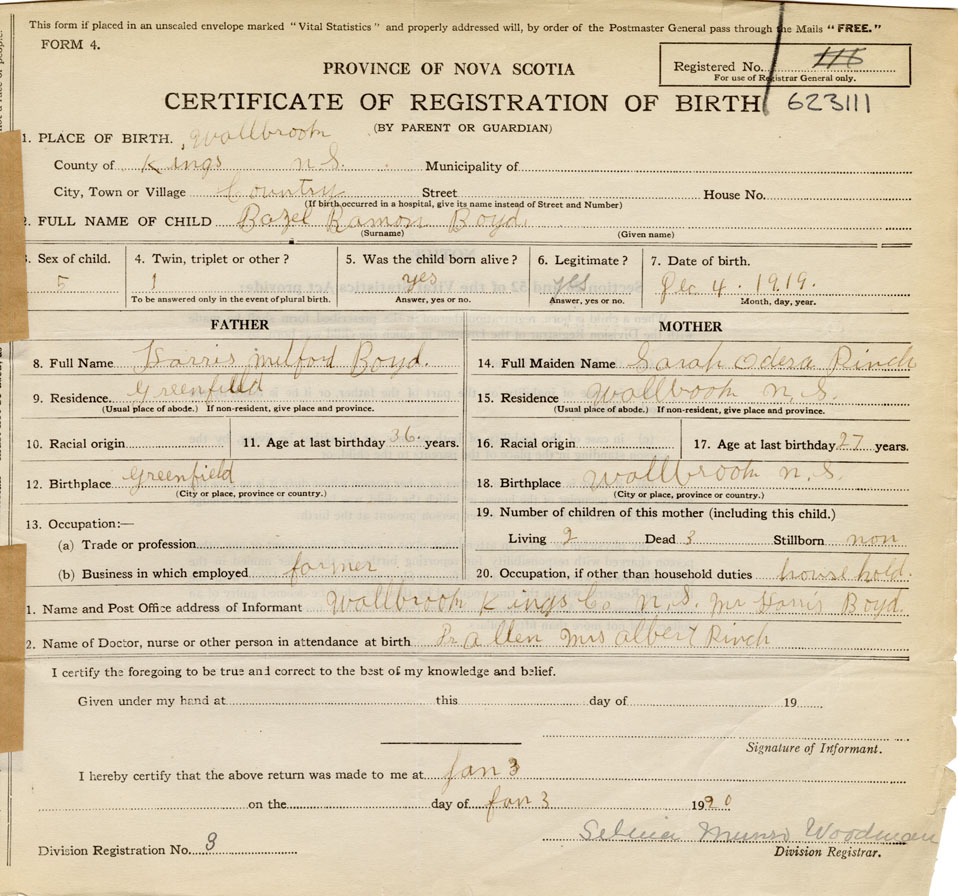 This form if placed in an unsealed envelope marked "Vital Statistics" and properly addressed will, by order of the Postmaster General pass through the Mails "FREE."
FORM 4.
Registered No. 116
For use of Registrar General only.
PROVINCE OF NOVA SCOTIA
CERTIFICATE OF REGISTRATION OF BIRTH 623111
(BY PARENT OR GUARDIAN)
1. PLACE OF BIRTH. Wallbrook
County of Kings N.S. Municipality of
City, Town or Village Country Street House No.
(If birth occurred in a hospital, give its name instead of Street and Number)
2. FULL NAME OF CHILD Bazel Ramon Boyd.
(Surname) (Given name)
3. Sex of child. 4. Twin, triplet or other? 5. Was the child born alive? 6. Legitimate? 7. Date of birth.
5 1 yes yes Dec 4. 1919.
To be answered only in the event of plural birth. Answer, yes or no. Answer, yes or no. Month, day, year.
FATHER MOTHER
8. Full Name Harris Milford Boyd. 14. Full Maiden Name Sarah Odera Rinch
9. Residence. Greenfield 15. Residence Wallbook N.S.
(Usual place of abode.) If non-resident, give place and province. (Usual place of abode.) If non-resident, give place and province.
10. Racial origin 11. Age at last birthday 36. years. 16. Racial origin 17. Age at last birthday 27 years.
12. Birthplace Greenfield 18. Birthplace Wallbrook N.S.
(City or place, province or country.) (City or place, province or country.)
13. Occupation:— 19. Number of children of this mother (including this child.)
(a) Trade or profession Living 2 Dead 3 Stillborn non
(b) Business in which employed farmer 20. Occupation, if other than household duties house hold.
1. Name and Post Office address of Informant Wallbrook Kings Co N.S. Mr Harris Boyd.
2. Name of Doctor, nurse or other person in attendance at birth Dr Allen Mrs Albert Rinch
I certify the foregoing to be true and correct to the best of my knowledge and belief.
Given under my hand at this day of 19
Signature of Informant.
I hereby certify that the above return was made to me at Jan 3
on the day of Jan 3 1920
Munro Woodman
Division Registration No. 3 Division Registrar.